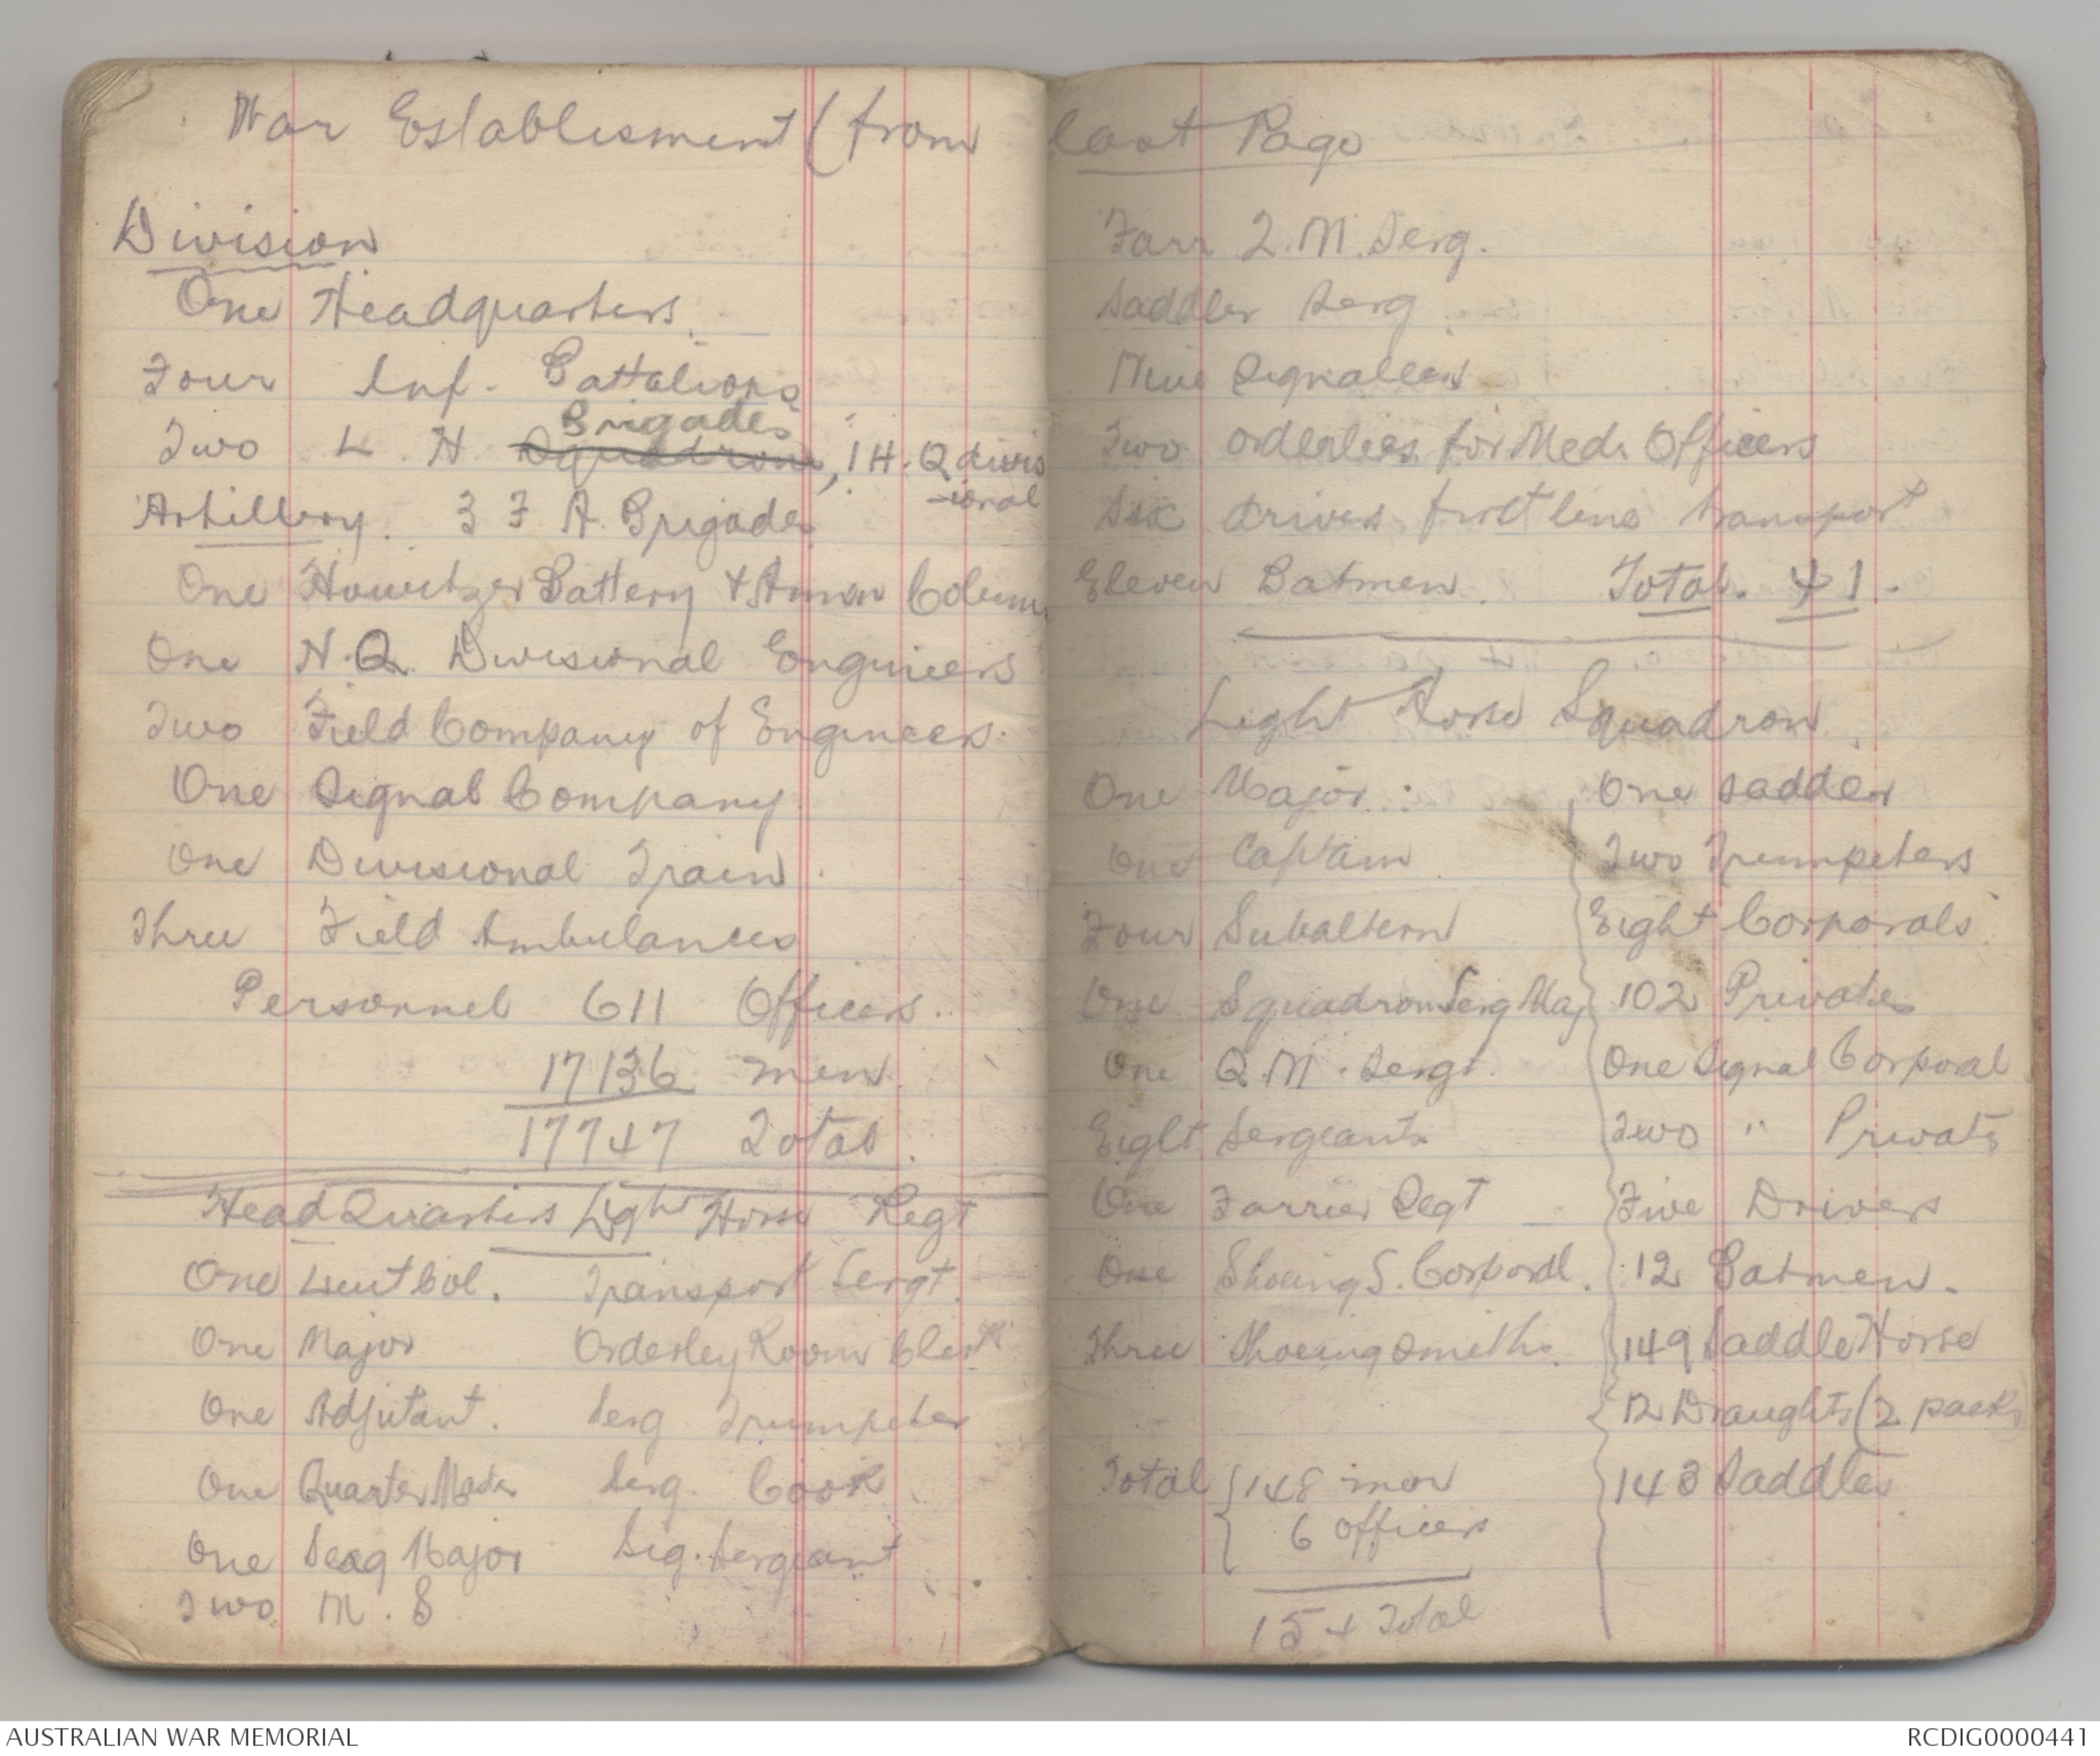 War Establisment (from
Division
One Headquarters.
Four Inf. Battalions
Brigades
Two L H Squadrons, 1 H.Q divis
-ional
Artillery. 3 F A Brigades
One Howitzer Battery & Ammn Colum
One H.Q. Divisional Engineers
Two Field Company of Engineers.
One Signal Company
One Divisional Train.
Three Field Ambulances
Personnel 611 Officers.
17136 men.
17747 Total.
Head Quarters Light Horse Regt
One Lieut Col. Transport Sergt.
One Major Orderley Room Clerk
One Adjutant. Serg Trumpeter
One Quarter Master Serg. Cook.
One Serg Major Sig. Sergeant
Two M. S
last Page
Farr Q.M. Serg.
Saddler Serg.
Nine Signallers
Two orderlies for Med. Officers
Six drives first line transport
Eleven Batmen. Total. 41.
Light Horse Squadron.
One Major: One sadder
One Captain Two Trumpeters
Four Subaltern Eight Corporals
One Squadron Serg Maj 102 Privates
One Q.M. Sergt. One Signal Corporal
Eight Sergeants Two " Privats
One Farrier Segt Five Drivers
One Shoeing S. Corporal. 12 Batmen.
Three Shoeing Smiths. 149 Saddle Horse
12 Draughts (2 packs)
Total 148 men 143 Saddles
6 officers
154 Total
AUSTRALIAN WAR MEMORIAL
RCDIG0000441